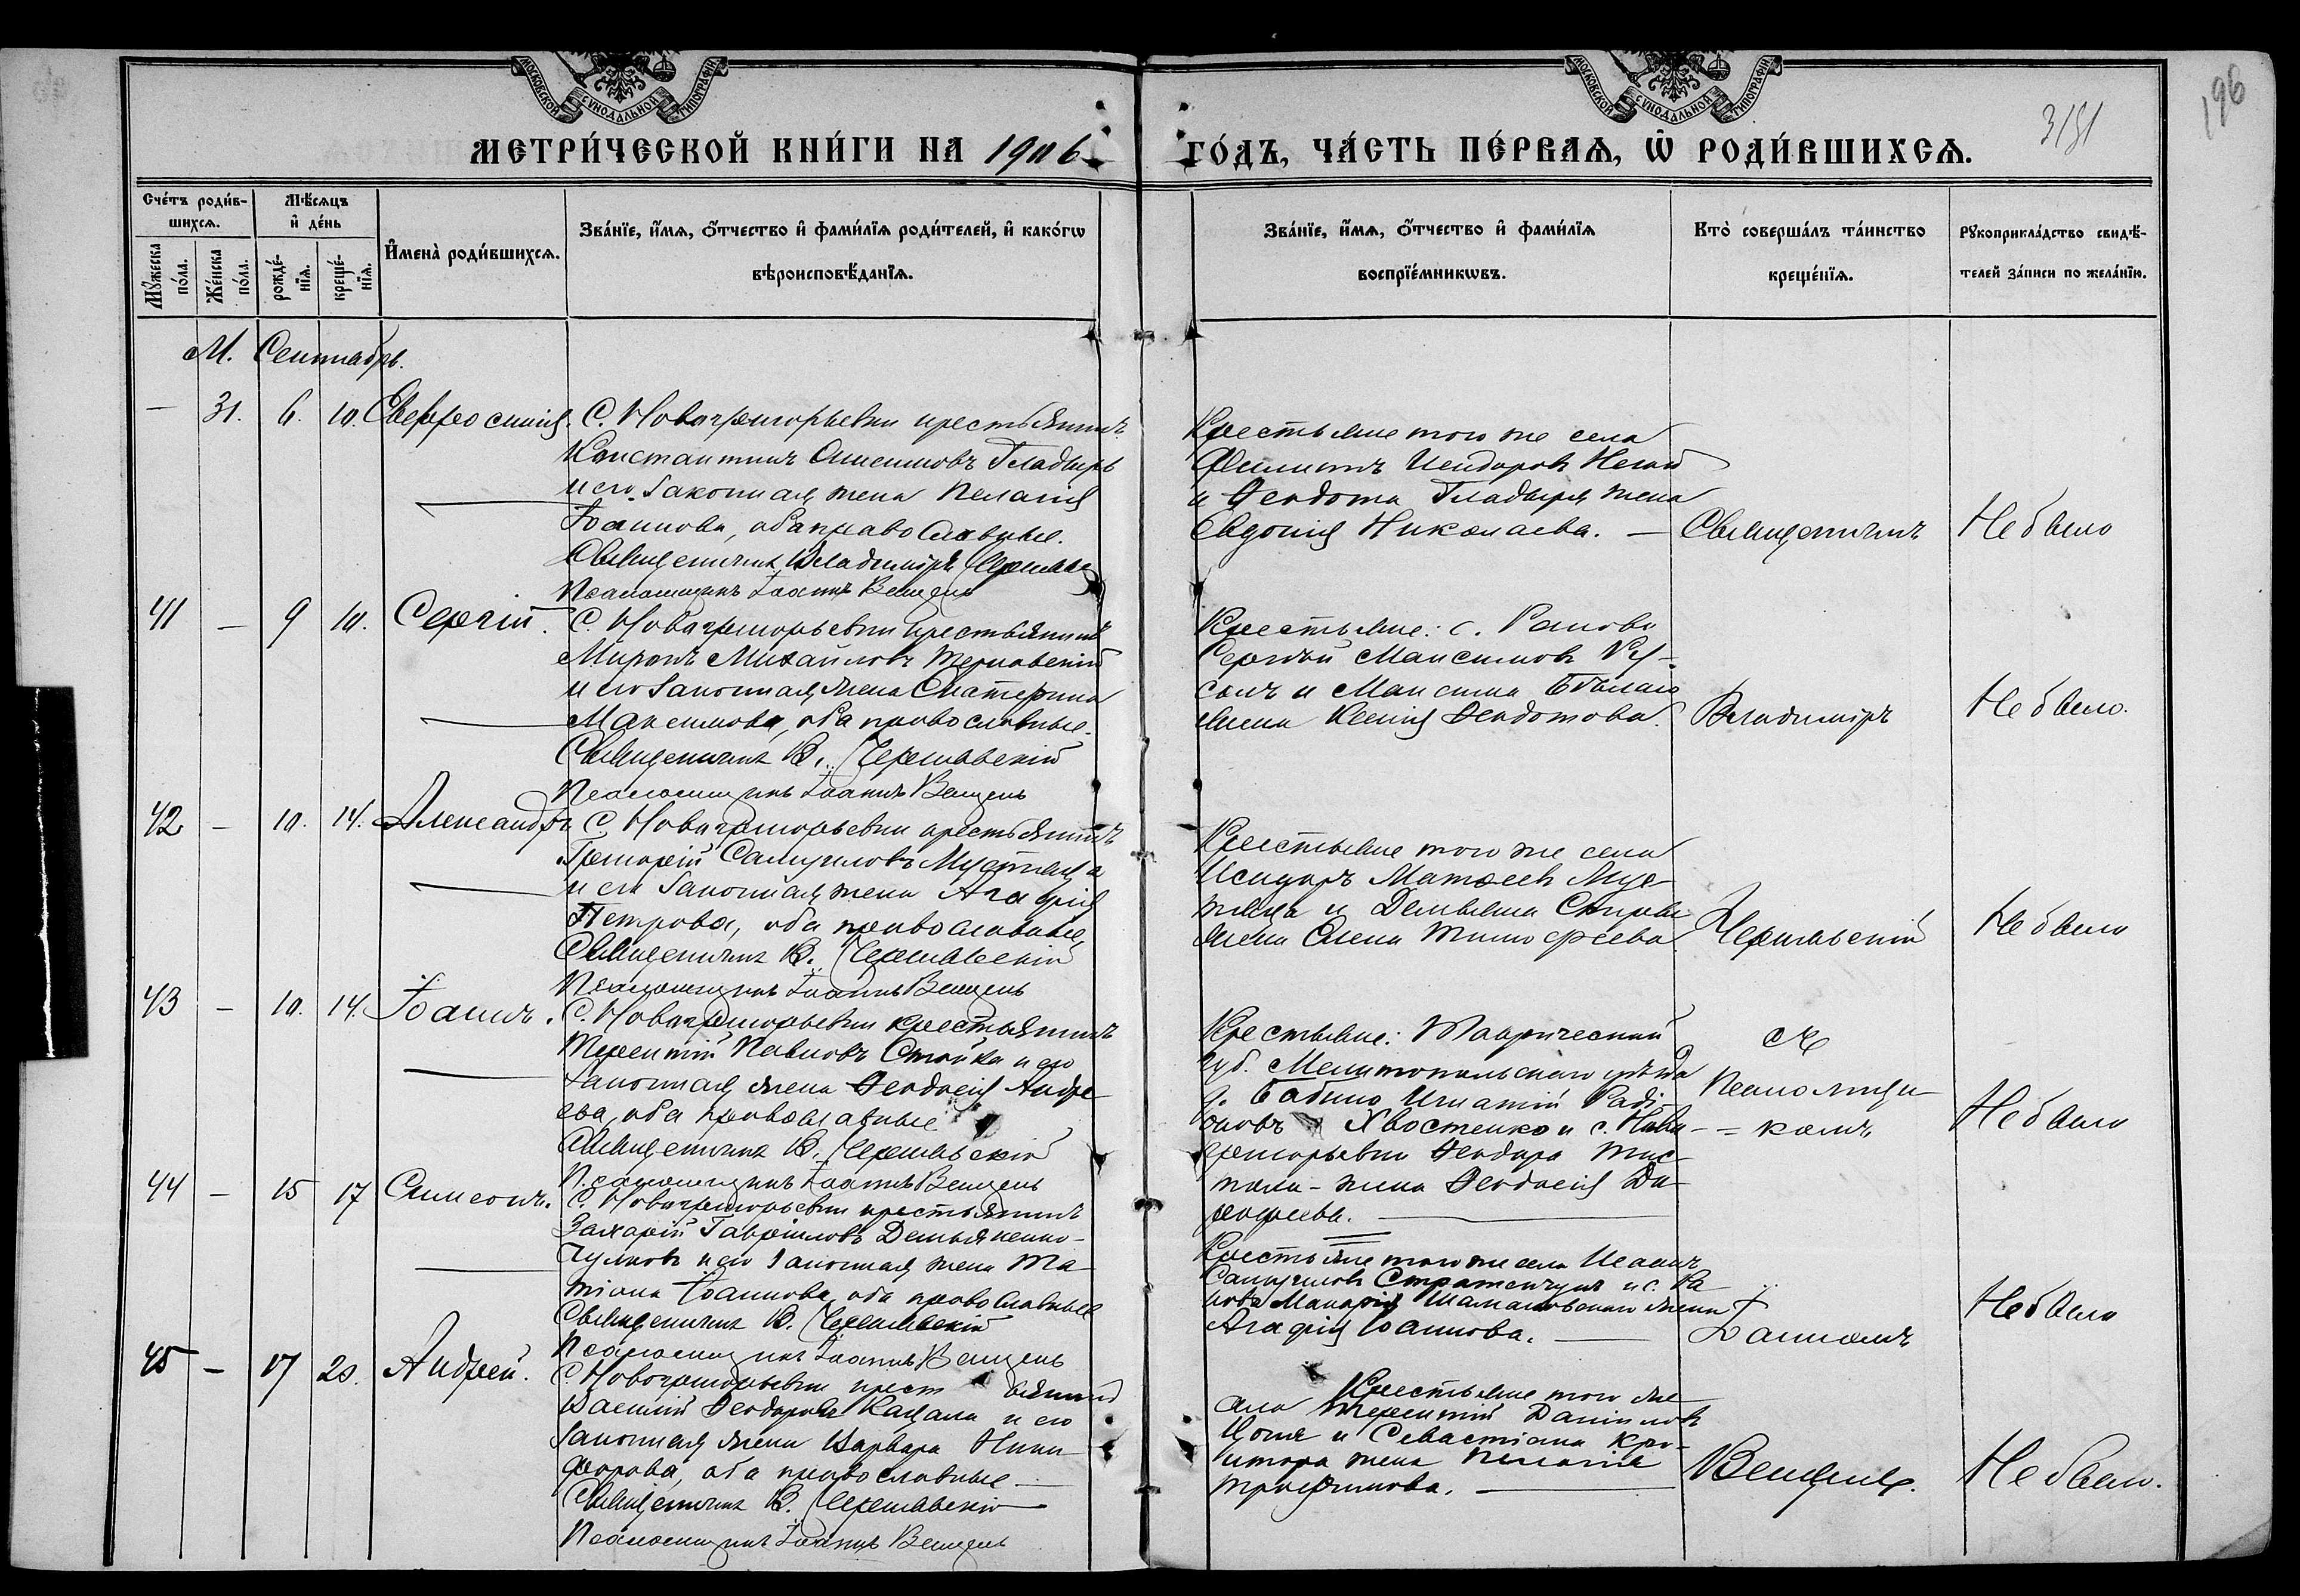 МОСКОВСКОЙ СѴНОДАЛЬНОЙ ТИПОГРАФІИ
МОСКОВСКОЙ СѴНОДАЛЬНОЙ ТИПОГРАФІИ
196
МЕТРИ́ЧЕСКОЙ КНИ́ГИ НА 1906
ГО́ДЪ, ЧА́СТЬ ПЕ́РВАѦ, Ѡ҆ РОДИ́ВШИХСѦ.
Сче́тъ роди́в-
шихсѧ.
Мѣ́сѧцъ
и҆ де́нь
Мꙋ́жеска по́ла.
Же́нска по́ла.
рожде́-нїѧ.
креще́-нїѧ.
И҆мена̀ роди́вшихсѧ.
Зва́нїе, и҆́мѧ, ѻ҆́тчество и҆ фами́лїѧ роди́телей, и҆ како́гѡ
вѣроисповѣ́данїѧ.
Зва́нїе, и҆́мѧ, ѻ҆́тчество и҆ фами́лїѧ
воспрїе́мникѡвъ.
Кто̀ соверша́лъ та́инство
креще́нїѧ.
Рꙋкоприкла́дство свидѣ́-
телей за́писи по жела́нїю.
М. Сентябрь.
— 31. 6. 10. Евфросинія.
С. Новогригорьевки крестьянинъ
Константинъ Онисимовъ Гладырь
и его законная жена Пелагія
Іоаннова, оба православные.
Священникъ Владиміръ
Псаломщикъ Іоаннъ Венцень
Крестьяне того же села
Филиппъ Исидоровъ
и Феодота Гладыря жена
Евдокія Николаева. —
Священникъ
Не было
41 — 9 10. Сергій.
С. Новогригорьевки крестьянинъ
Миронъ Михайловъ Терновскій
и его законная жена Екатерина
Максимова, оба православные.
Священникъ В. Чернявскій
Псаломщикъ Іоаннъ Венцень
Крестьяне: с. Раково
Сергѣй Максимовъ Ру-
санъ и Максима
жена Ксенія Феодотова.
Владиміръ
Не было.
42 — 10. 14. Александръ
С. Новогригорьевки крестьянинъ
Григорій Самуиловъ Мустяца
и его законная жена Агафія
Петрова, оба православные,
Священникъ В. Чернявскій
Псаломщикъ Іоаннъ Венцень
Крестьяне того же села
Исидоръ Матѳеевъ Мус-
тяца и Демьяна
жена Елена Тимофеева.
Чернявскій
Не было
43 — 10. 14. Іоаннъ.
С. Новогригорьевки крестьянинъ
Терентій Павловъ Стойка и его
законная жена Феодосія Андре-
ева, оба православные
Священникъ В. Чернявскій
Псаломщикъ Іоаннъ Венцень
Крестьяне: Таврической
губ. Мелитопольскаго уѣзда
Бабино Игнатій Раді-
оновъ Хвостенко и с. Ново-
григорьевки Феодора
жена Феодосія До-
рофеева.
съ
Псаломщи-
= комъ
Не было
44 — 15 17 Симеонъ.
С. Новогригорьевки крестьянинъ
Захарій Гавріиловъ Демьяненко-
Чумакъ и его законная жена Та-
тіана Іоаннова, оба православные
Священникъ В. Чернявскій
Псаломщикъ Іоаннъ Венцень
Крестьяне того же села Иоаннъ
Самуиловъ Стратейчукъ и с. Ра-
ково Макарія Шамановскаго жена
Агафія Іоаннова. —
Іоанномъ
Не было
45 — 17 20. Андрей.
С. Новогригорьевки крестьянинъ
Василій Феодоровъ Кацала и его
законная жена Варвара Ники-
форова, оба православные —
Священникъ В. Чернявскій
Псаломщикъ Іоаннъ Венцень
Крестьяне того же
села Терентій Даніиловъ
и Севастіана
жена Пелагія
Трофимова. —
Венцень.
Не было.